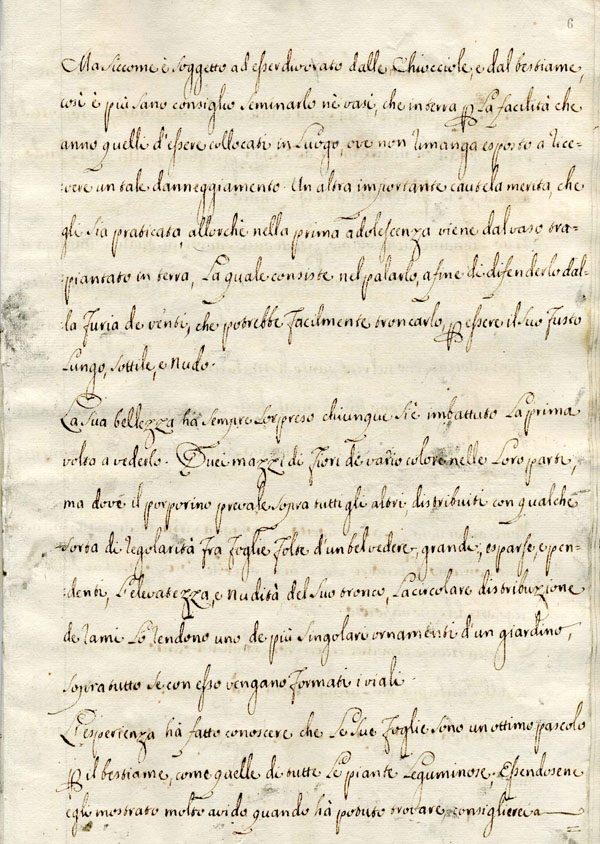 6
Ma siccome è soggetto ad esser divorato dalle Chiocciole, e dal bestiame,
così è più sano consiglio seminarlo nè vasi, che in terra ꝑ la facilità che
anno quelli d'essere collocati in luogo, ove non rimanga esposto a rice=
vere un tale danneggiamento. Un altra importante cautela merita, che
gli sia praticata, allorchè nella prima adolescenza viene dal vaso tra=
=piantato in terra, la quale consiste nel palarlo, a fine di difenderlo dal=
=la furia de venti, che potrebbe facilmente troncarlo, ꝑ essere il suo fusto
lungo, sottile, e nudo.
La sua bellezza ha sempre sorpreso chiunque si è imbattuto la prima
volta a vederlo. Quei mazzi di fiori di vario colore nelle loro parti,
ma dove il porporino prevale sopra tutti gli altri, distribuiti con qualche
sorta di regolarità fra foglie folte d'un bel vedere, grandi, esparse, e pen=
=denti, l'elevatezza, e nudità del suo tronco, la circolare distribuzione
de rami lo rendono uno de più singolari ornamenti d'un giardino,
sopra tutto se con esso vengano formati i viali.
L'esperienza hà fatto conoscere che le sue foglie sono un ottimo pascolo
ꝑ il bestiame, come quelle di tutte le piante leguminose. Essendosene
egli mostrato molto avido quando hà potuto trovare, consiglierei a